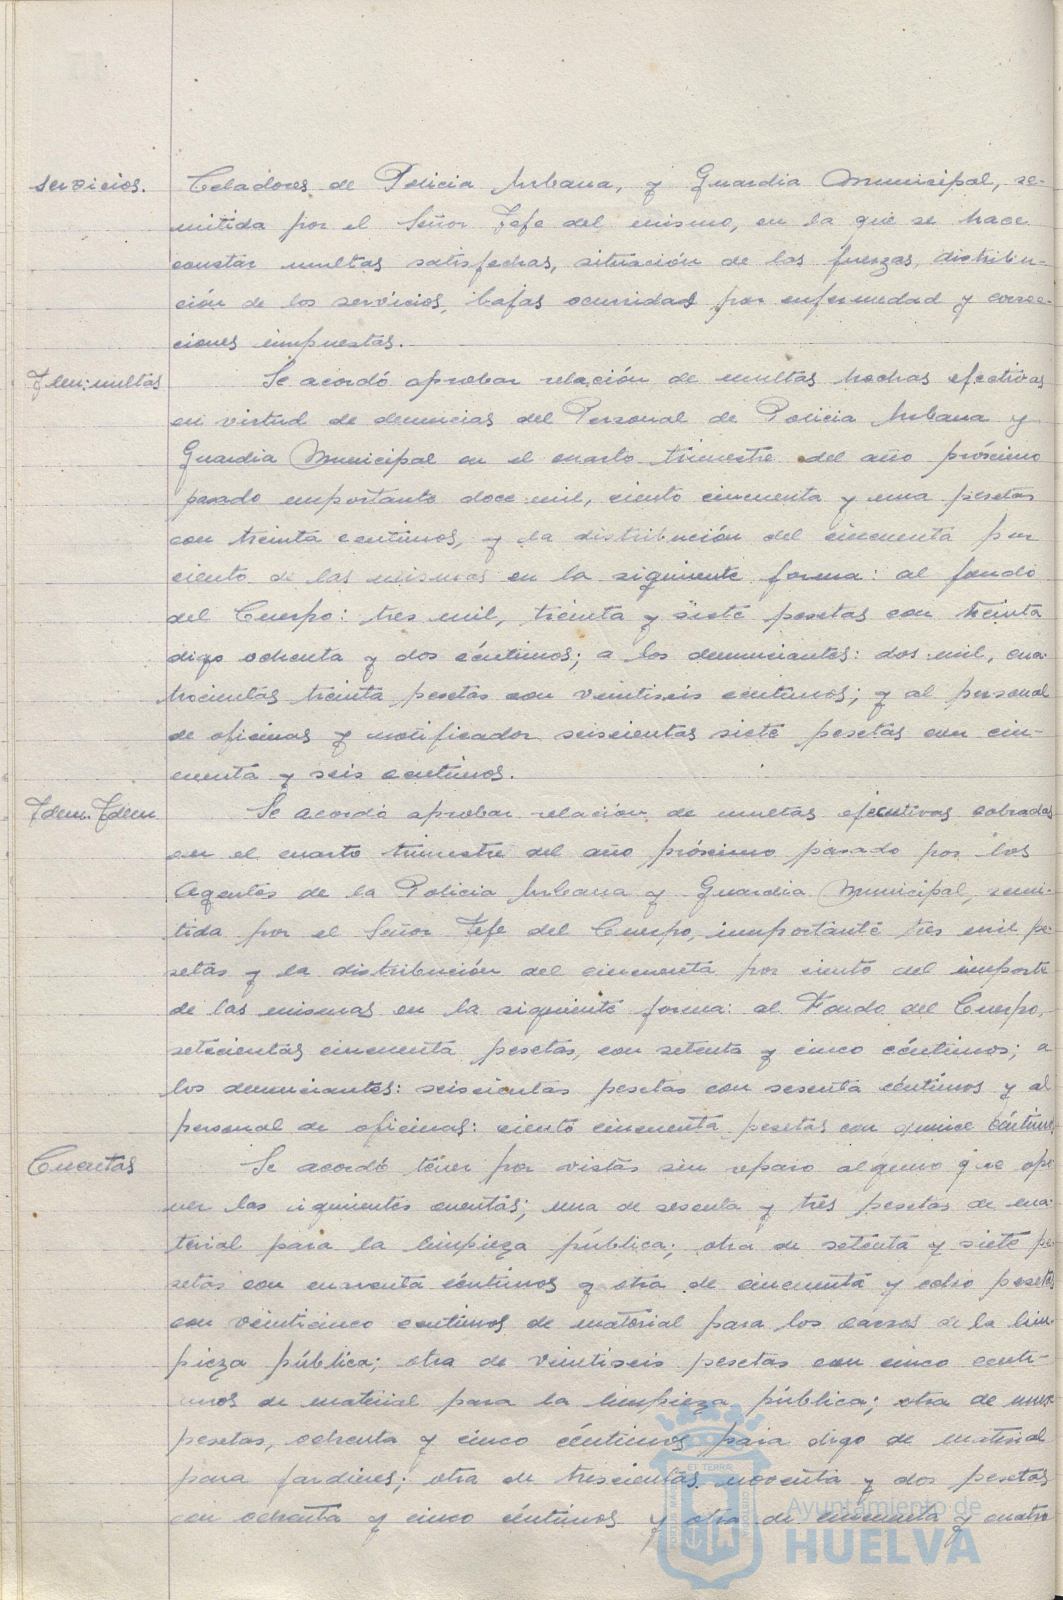 servicios. Celadores de Policia Urbana, y Guardia Municipal, re-
mitida por el Señor Jefe del mismo, en la que se hace
constar multas satisfechas, situación de las fuerzas, distribu-
ción de los servicios, bajas ocurridas por enfermedad y correc-
ciones impuestas.
Idem: multas Se acordó aprobar relación de multas hechas efectivas
en virtud de denuncias del Personal de Policia Urbana y
Guardia Municipal en el cuarto trimestre del año próximo
pasado importante doce mil, ciento cincuenta y una pesetas
con treinta centimos, y la distribución del cincuenta por
ciento de las mismas en la siguiente forma: al fondo
del Cuerpo: tres mil, treinta y siete pesetas con treinta
digo ochenta y dos céntimos; a los denunciantes: dos mil, cua-
trocientas treinta pesetas con veintiseis centimos; y al personal
de oficinas y notificador seiscientas siete pesetas con cin-
cuenta y seis centimos.
Idem. Idem Se acordó aprobar relación de multas ejecutivas cobradas
en el cuarto trimestre del año próximo pasado por los
Agentes de la Policia Urbana y Guardia Municipal, remi-
tida por el Señor Jefe del Cuerpo, importante tres mil pe-
setas y la distribución del cincuenta por ciento del importe
de las mismas en la siguiente forma: al Fondo del Cuerpo,
setecientas cincuenta pesetas, con setenta y cinco céntimos; a
los denunciantes: seiscientas pesetas con sesenta céntimos y al
personal de oficinas: ciento cincuenta pesetas con quince céntimos
Cuentas Se acordó tener por vistas sin reparo alguno que opo
ner las siguientes cuentas; una de sesenta y tres pesetas de ma-
terial para la limpieza pública; otra de setenta y siete pe
setas con cuarenta céntimos y otra de cincuenta y ocho pesetas
con veinticinco centimos de material para los carros de la lim-
pieza pública; otra de veintiseis pesetas con cinco centi-
mos de material para la limpieza pública; otra de nueve
pesetas, ochenta y cinco céntimos para digo de material
para jardines; otra de trescientas noventa y dos pesetas
con ochenta y cinco céntimos y otra de cincuenta y cuatro
Ayuntamiento de
HUELVA